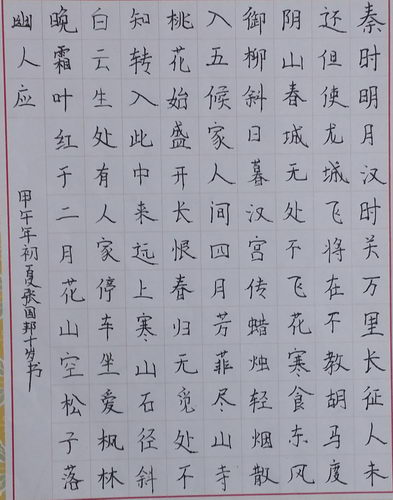 秦时明月汉时关万里长征人未
还但使龙城飞将在不教胡马度
阴山春城无处不飞花寒食东风
御柳斜日暮汉宫传蜡烛轻烟散
入五候家人间四月芳菲尽山寺
桃花始盛开长恨春归无觅处不
知转入此中来远上寒山石径斜
白云生处有人家停车坐爱枫林
晚霜叶红于二月花山空松子落
幽人应
甲午年初夏张国邦十岁书